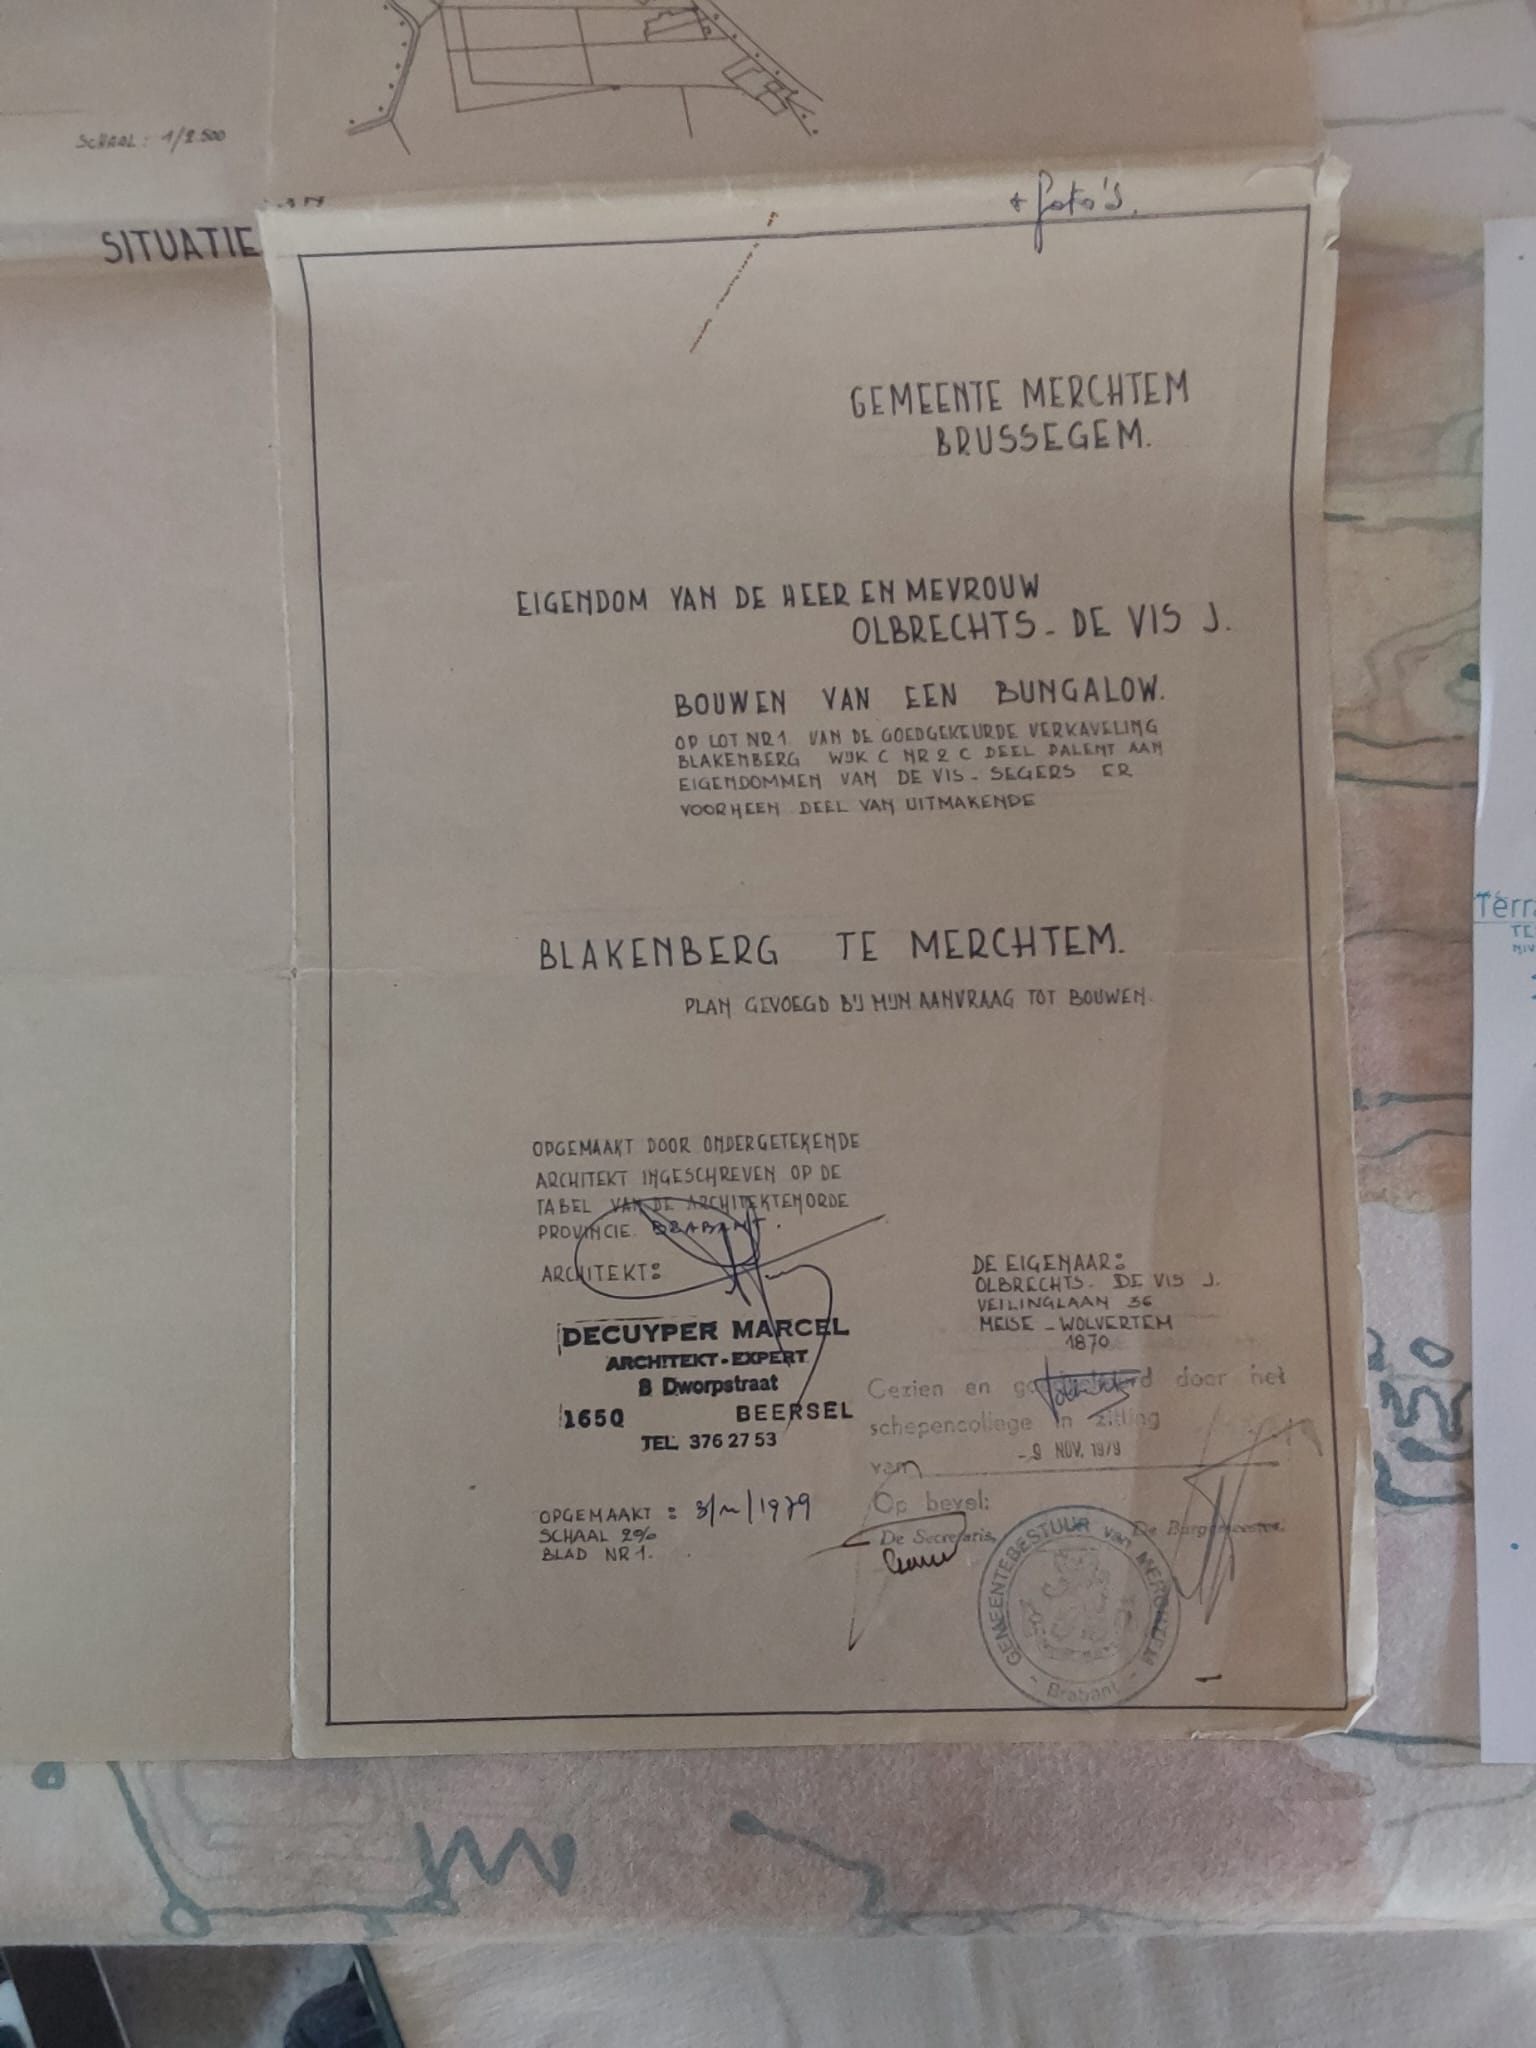 SCHAAL: 1/2.500
SITUATIE
+ foto's.
GEMEENTE MERCHTEM
BRUSSEGEM.
EIGENDOM VAN DE HEER EN MEVROUW
OLBRECHTS - DE VIS J.
BOUWEN VAN EEN BUNGALOW.
OP LOT NR 1. VAN DE GOEDGEKEURDE VERKAVELING
BLAKENBERG WIJK C NR 2 C DEEL PALENT AAN
EIGENDOMMEN VAN DE VIS - SEGERS ER
VOORHEEN DEEL VAN UITMAKENDE
BLAKENBERG TE MERCHTEM.
PLAN GEVOEGD BIJ MIJN AANVRAAG TOT BOUWEN.
OPGEMAAKT DOOR ONDERGETEKENDE
ARCHITEKT INGESCHREVEN OP DE
TABEL VAN DE ARCHITEKTENORDE
PROVINCIE BRABANT.
ARCHITEKT:
DECUYPER MARCEL
ARCHITEKT-EXPERT
8 Dworpstraat
1650 BEERSEL
TEL. 376 27 53
OPGEMAAKT : 3/ /1979
SCHAAL 2%
BLAD NR 1.
DE EIGENAAR:
OLBRECHTS - DE VIS J.
VEILINGLAAN 36
MEISE - WOLVERTEM
1870
Gezien en goedgekeurd door het
schepencollege in zitting
van - 9 NOV. 1979
Op bevel:
De Secretaris, De Burgemeester.
GEMEENTEBESTUUR van MERCHTEM
- Brabant -
Terra